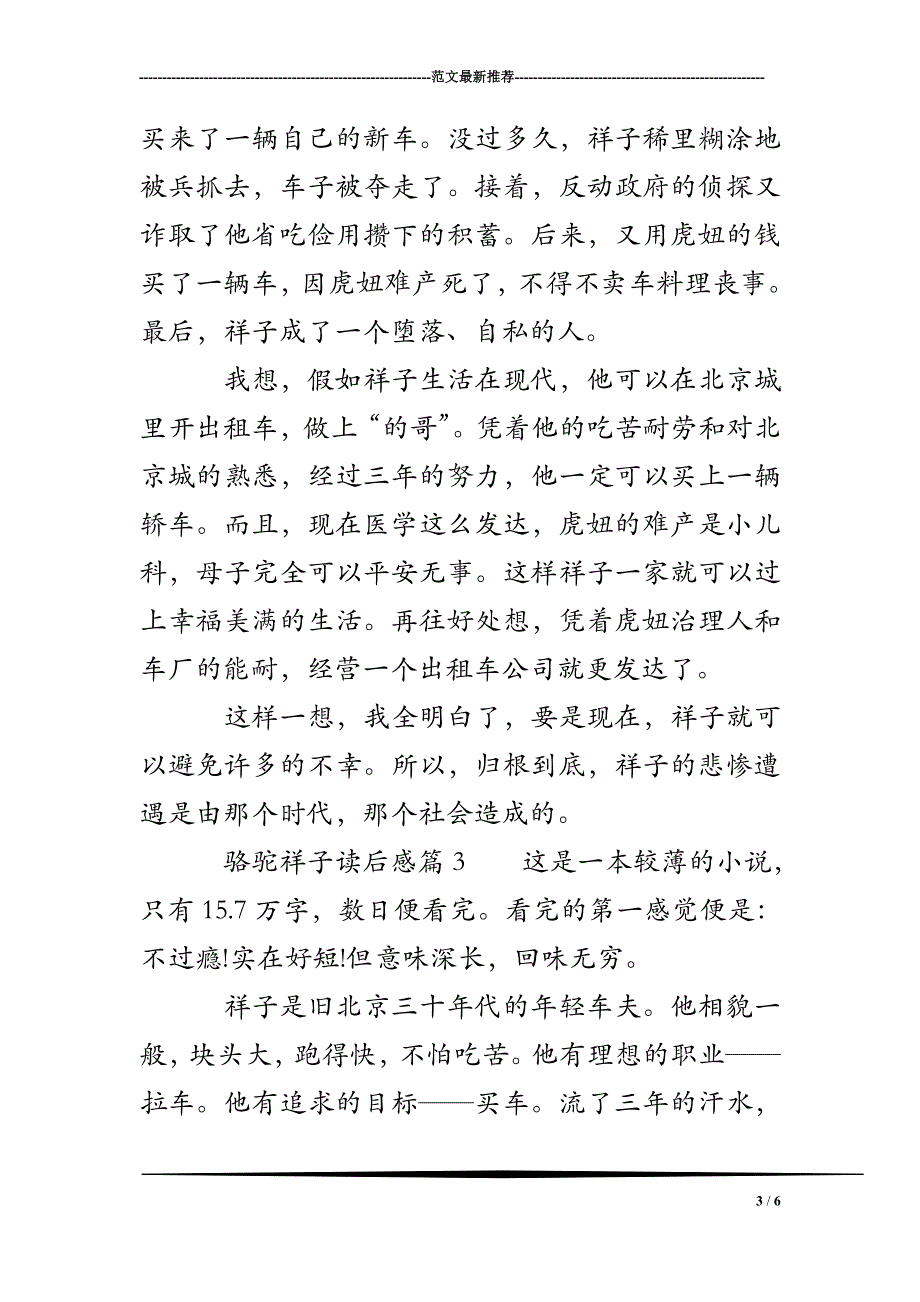 ---------------------------------------------------------------范文最新推荐------------------------------------------------------
买来了一辆自己的新车。没过多久，祥子稀里糊涂地
被兵抓去，车子被夺走了。接着，反动政府的侦探又
诈取了他省吃俭用攒下的积蓄。后来，又用虎妞的钱
买了一辆车，因虎妞难产死了，不得不卖车料理丧事。
最后，祥子成了一个堕落、自私的人。
我想，假如祥子生活在现代，他可以在北京城
里开出租车，做上“的哥”。凭着他的吃苦耐劳和对北
京城的熟悉，经过三年的努力，他一定可以买上一辆
轿车。而且，现在医学这么发达，虎妞的难产是小儿
科，母子完全可以平安无事。这样祥子一家就可以过
上幸福美满的生活。再往好处想，凭着虎妞治理人和
车厂的能耐，经营一个出租车公司就更发达了。
这样一想，我全明白了，要是现在，祥子就可
以避免许多的不幸。所以，归根到底，祥子的悲惨遭
遇是由那个时代，那个社会造成的。
骆驼祥子读后感篇 3 这是一本较薄的小说，
只有 15.7 万字，数日便看完。看完的第一感觉便是：
不过瘾!实在好短!但意味深长，回味无穷。
祥子是旧北京三十年代的年轻车夫。他相貌一
般，块头大，跑得快，不怕吃苦。他有理想的职业——
拉车。他有追求的目标——买车。流了三年的汗水，
3 / 6